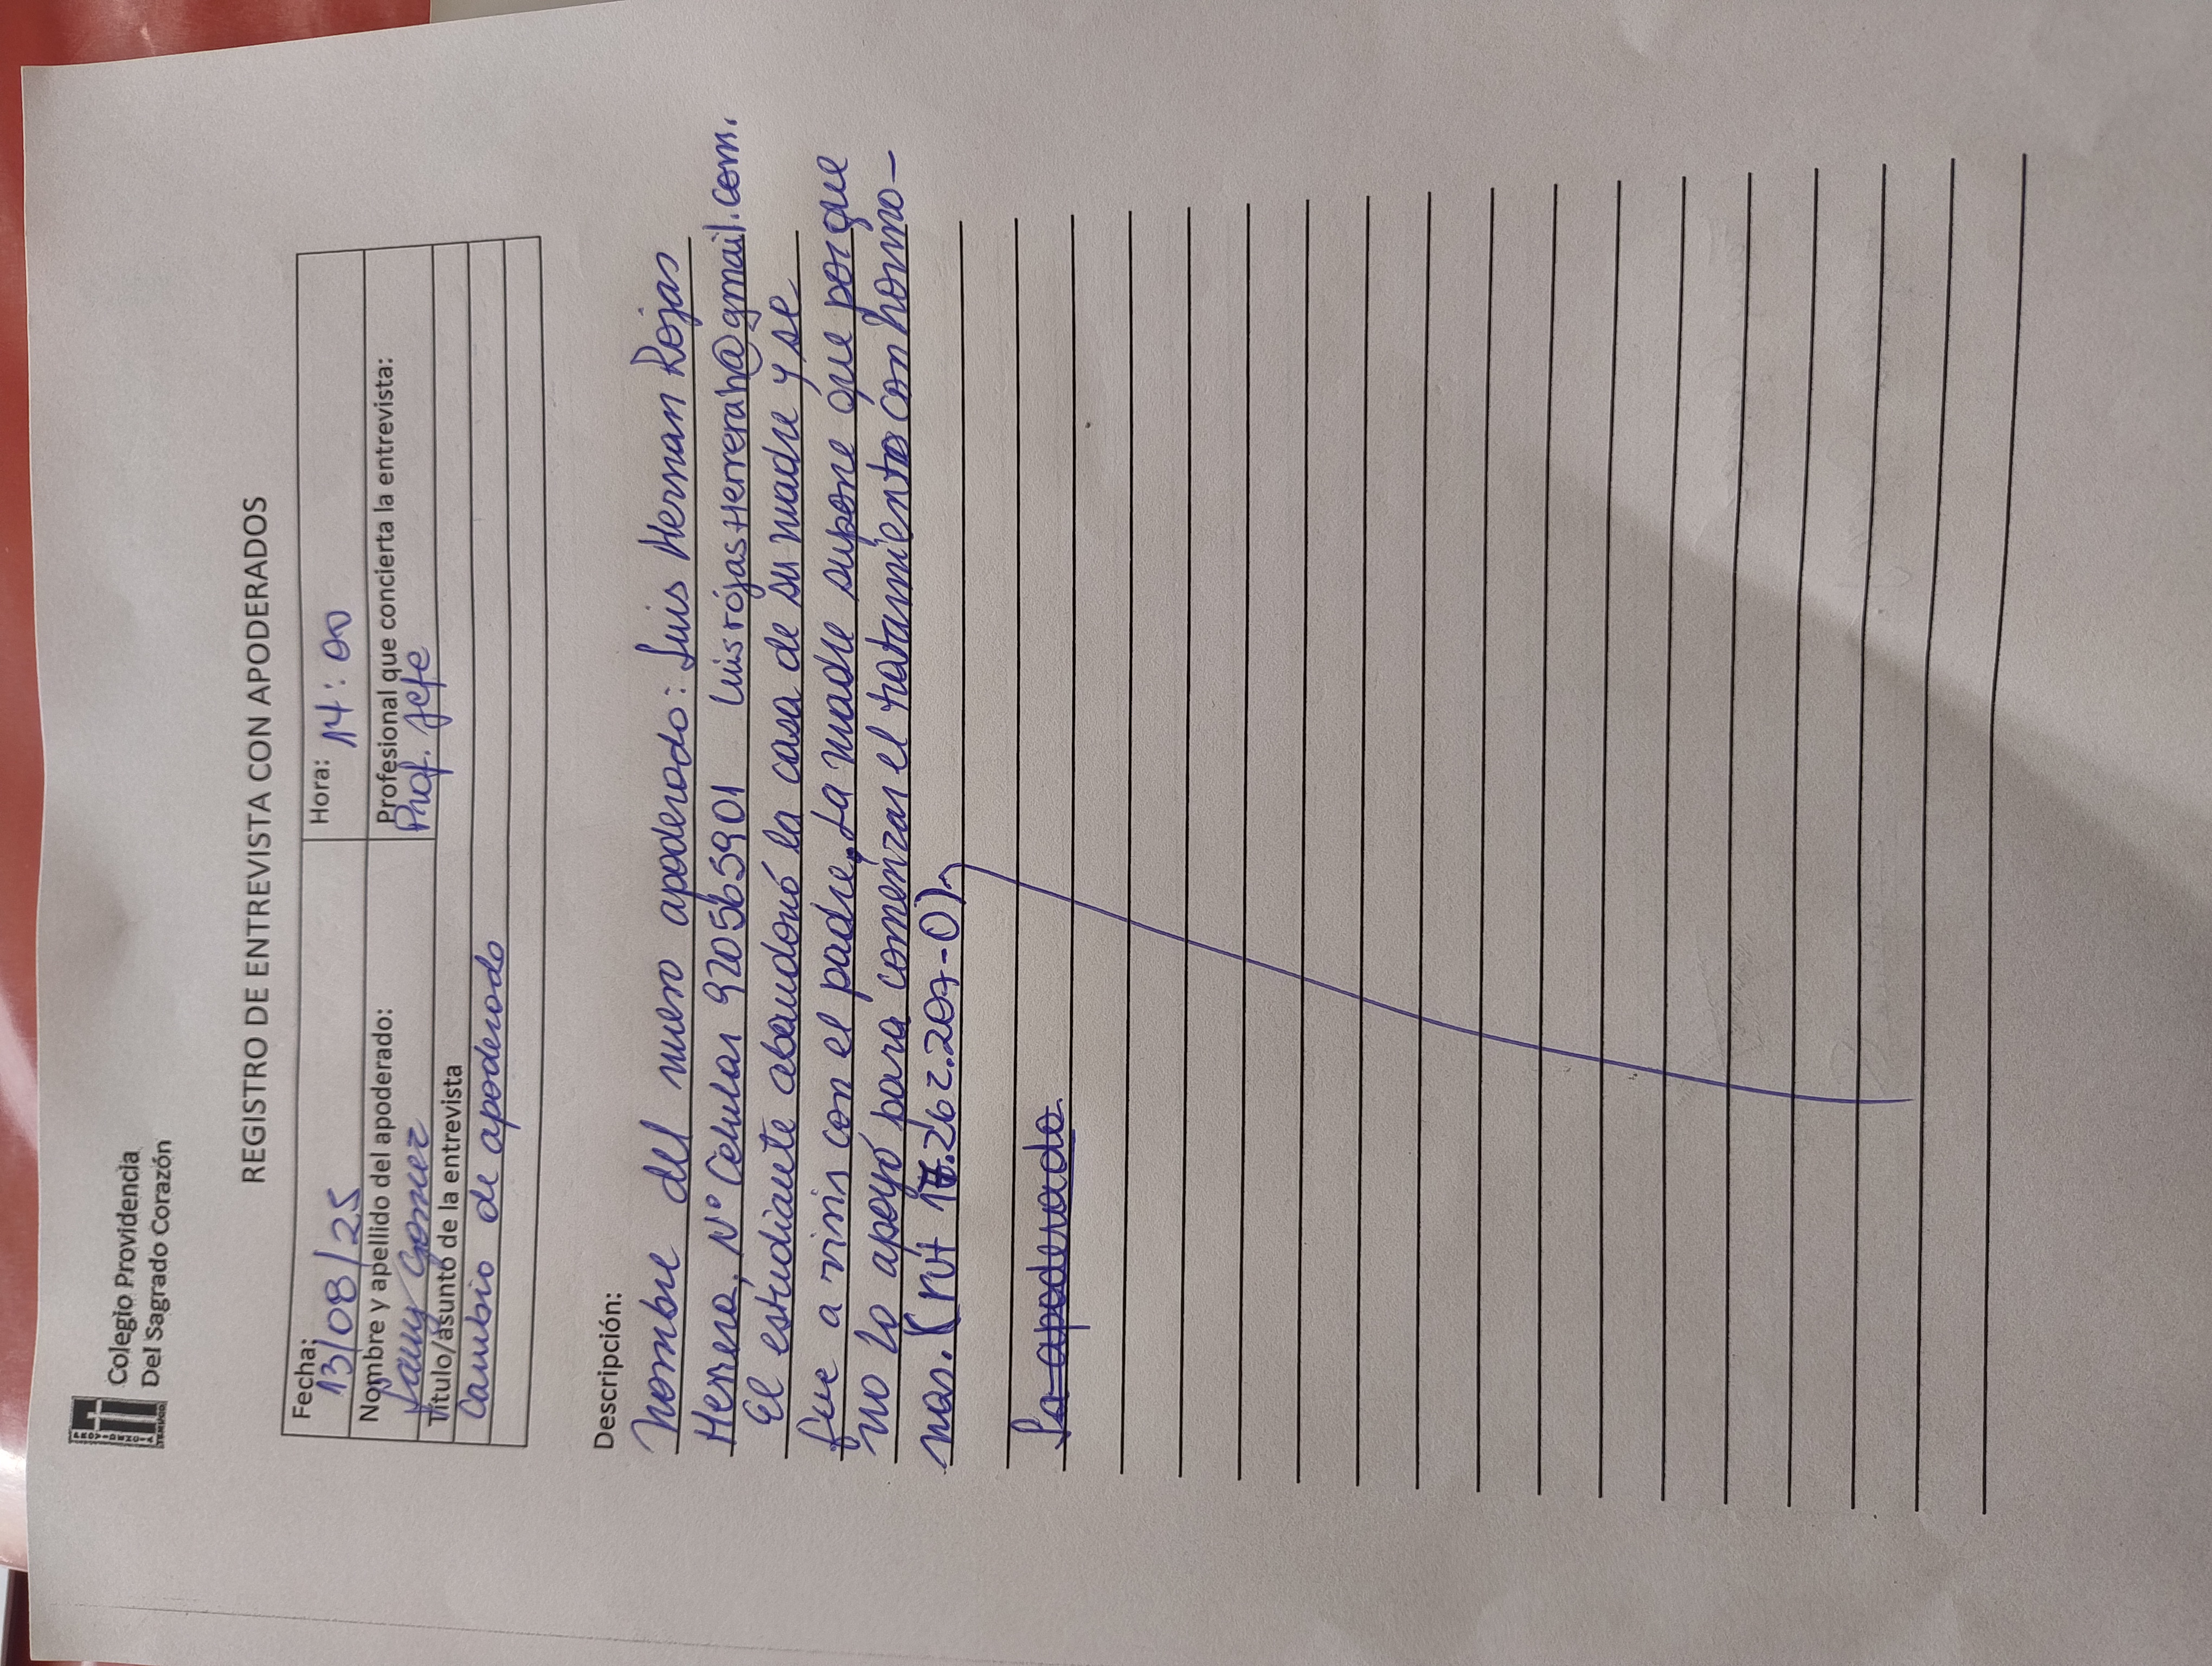 Colegio Providencia
Del Sagrado Corazón
REGISTRO DE ENTREVISTA CON APODERADOS
Fecha: 13/08/25 Hora: 14:00
Nombre y apellido del apoderado: Profesional que concierta la entrevista:
Gomez Prof. Jefe
Título/asunto de la entrevista
Cambio de apoderado
Descripción:
Nombre del nuevo apoderado: Luis Hernan Rojas
Herrera, N° Celular 920565901 Luisrojasherrerah@gmail.com.
El estudiante abandonó la casa de su madre y se
fue a vivir con el padre. La madre supone que porque
no lo apoyó para comenzar el tratamiento con hormo-
nas. (rut 17.262.207-0)
La apoderado